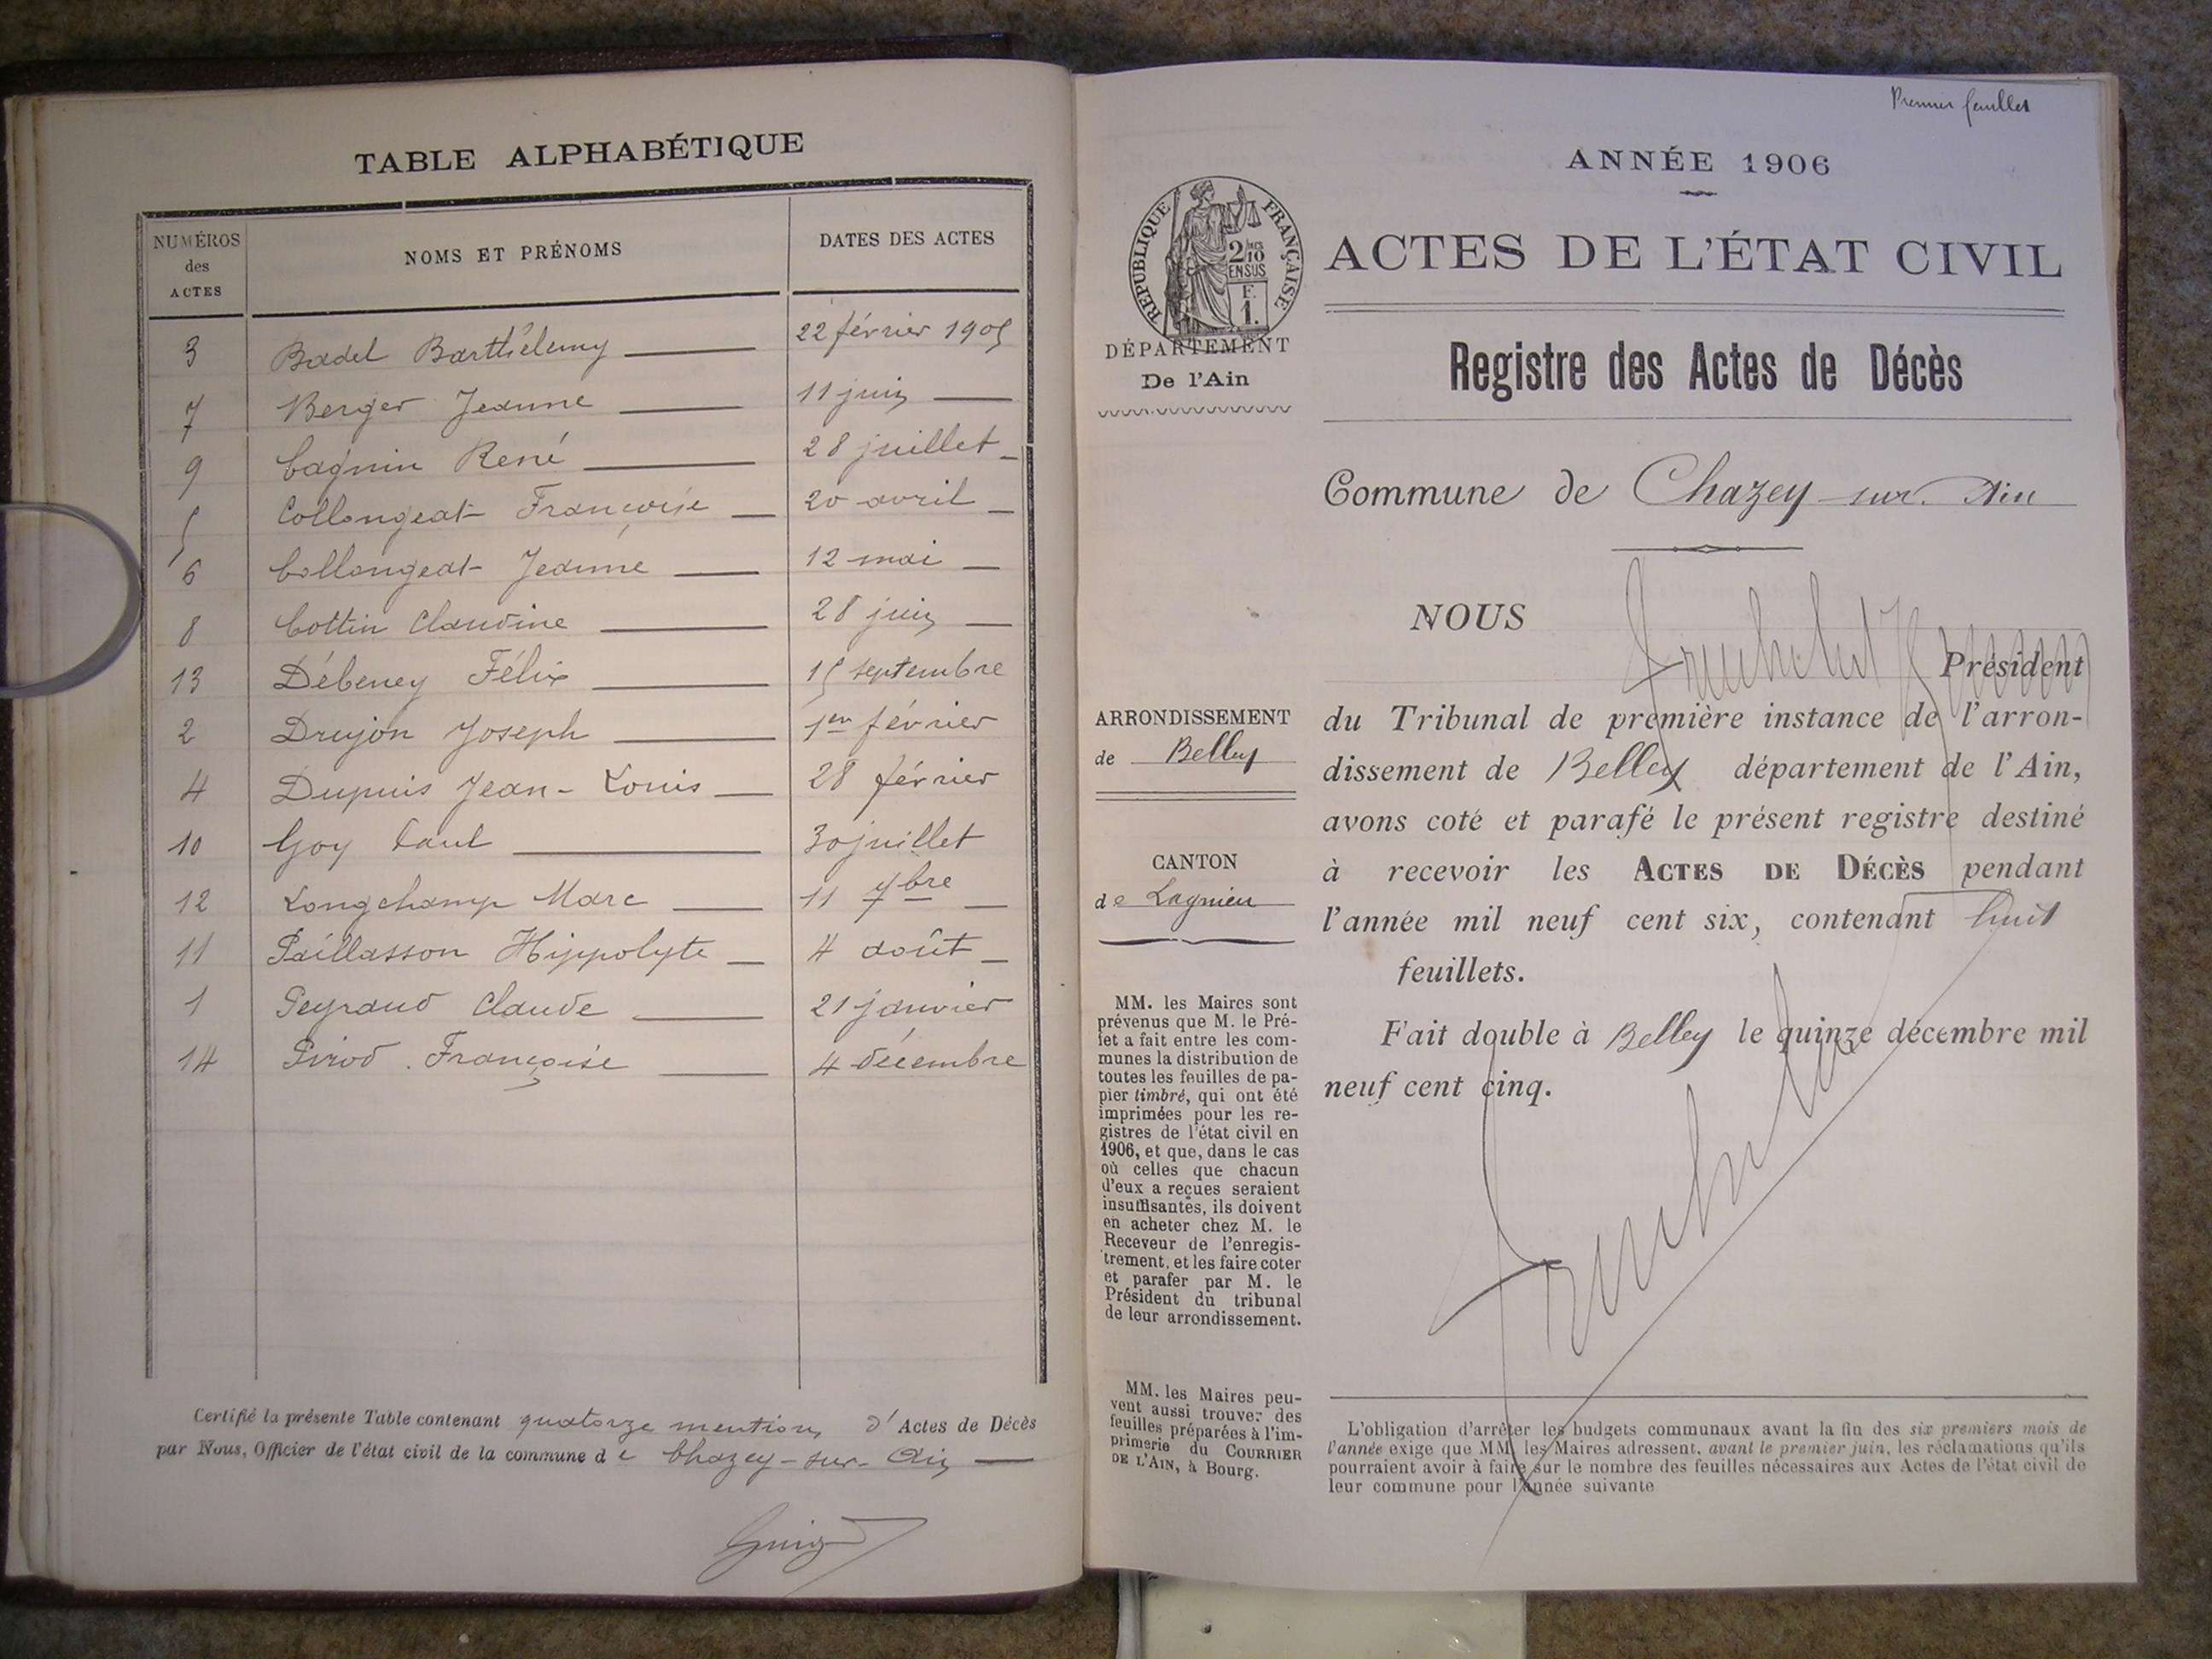 TABLE ALPHABÉTIQUE
NUMÉROS des ACTES
NOMS ET PRÉNOMS
DATES DES ACTES
3 Badel Barthélemy 22 février 1905
7 Berger Jeanne 11 juin
9 Cagnin René 28 juillet
5 Collongeat Françoise 20 avril
6 Collongeat Jeanne 12 mai
8 Cottin Claudine 28 juin
13 Débeney Félix 15 septembre
2 Drujon Joseph 1er février
4 Dupuis Jean-Louis 28 février
10 Goy Paul 30 juillet
12 Longchamp Marc 11 7bre
11 Paillasson Hippolyte 4 août
1 Peyraud Claude 21 janvier
14 Pirod Françoise 4 décembre
Certifié la présente Table contenant quatorze mentions d'Actes de Décès
par Nous, Officier de l'état civil de la commune de Chazey-sur-Ain
Premier feuillet
ANNÉE 1906
ACTES DE L'ÉTAT CIVIL
RÉPUBLIQUE FRANÇAISE
2/10
EN SUS
F.
1.
DÉPARTEMENT
De l'Ain
Registre des Actes de Décès
Commune de Chazey-sur-Ain
NOUS
Président
du Tribunal de première instance de l'arron-
dissement de Belley département de l'Ain,
avons coté et parafé le présent registre destiné
à recevoir les ACTES DE DÉCÈS pendant
l'année mil neuf cent six, contenant huit
feuillets.
Fait double à Belley le quinze décembre mil
neuf cent cinq.
ARRONDISSEMENT
de Belley
CANTON
de Lagnieu
MM. les Maires sont
prévenus que M. le Pré-
fet a fait entre les com-
munes la distribution de
toutes les feuilles de pa-
pier timbré, qui ont été
imprimées pour les re-
gistres de l'état civil en
1906, et que, dans le cas
où celles que chacun
d'eux a reçues seraient
insuffisantes, ils doivent
en acheter chez M. le
Receveur de l'enregis-
trement, et les faire coter
et parafer par M. le
Président du tribunal
de leur arrondissement.
MM. les Maires peu-
vent aussi trouver des
feuilles préparées à l'im-
primerie du COURRIER
DE L'AIN, à Bourg.
L'obligation d'arrêter les budgets communaux avant la fin des six premiers mois de
l'année exige que MM. les Maires adressent, avant le premier juin, les réclamations qu'ils
pourraient avoir à faire sur le nombre des feuilles nécessaires aux Actes de l'état civil de
leur commune pour l'année suivante